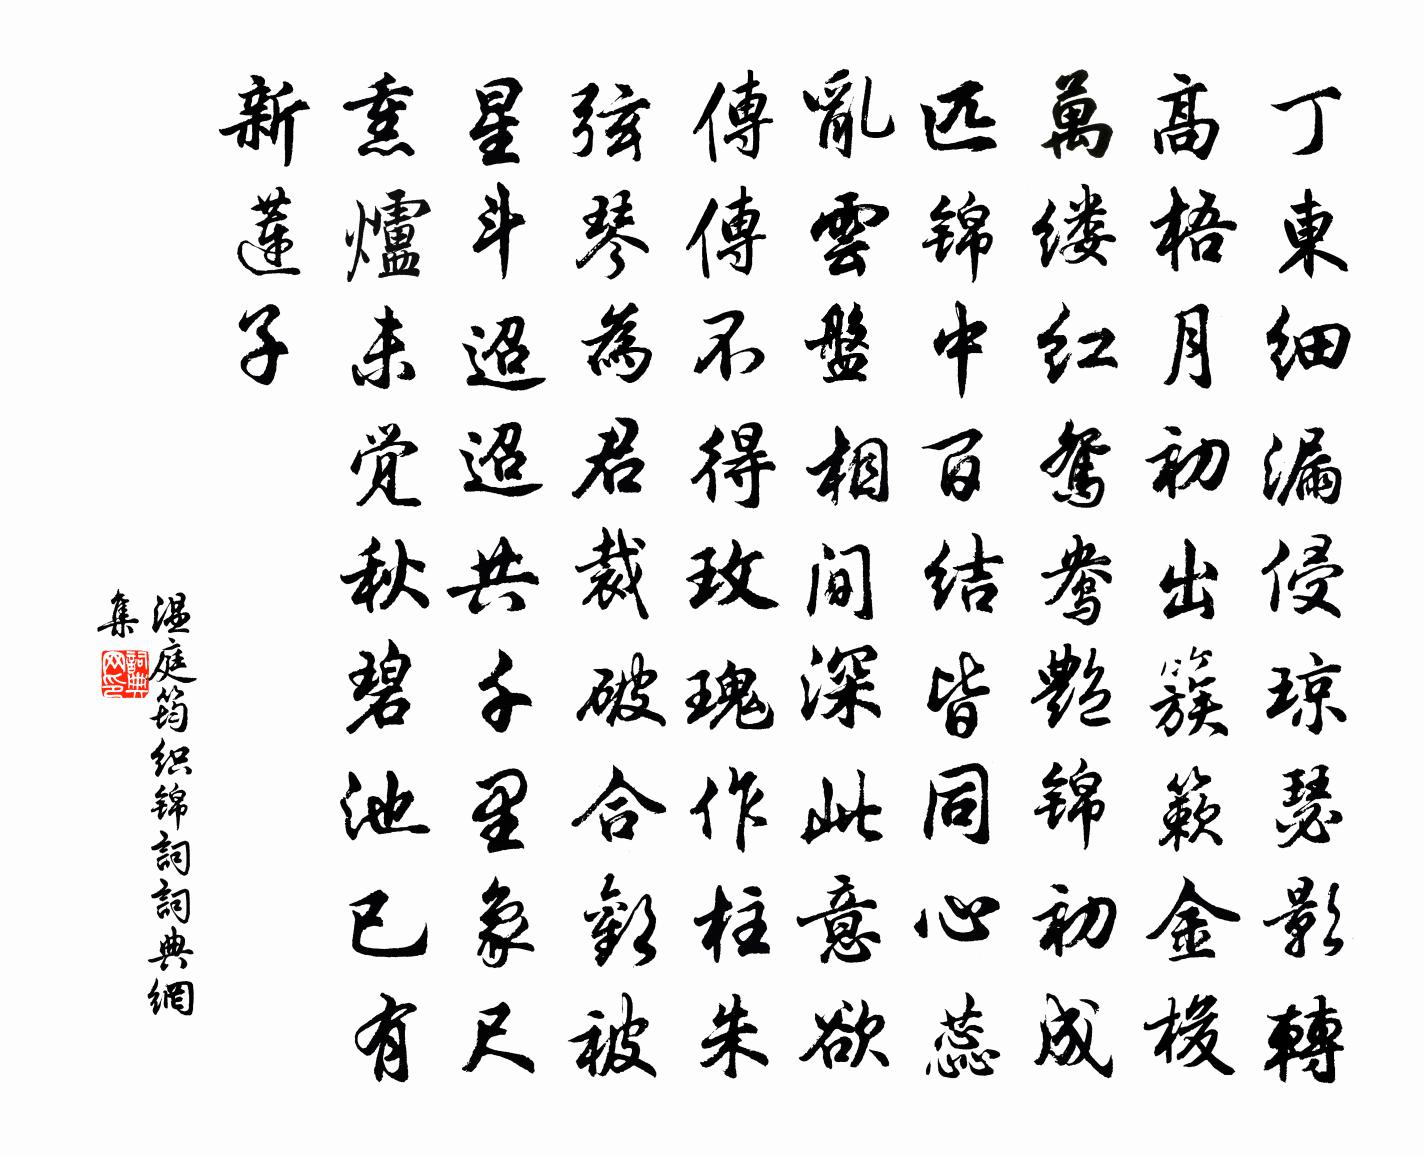 丁東细漏侵琼瑟影轉
髙梧月初出簇簌金梭
萬缕红鸳鸯艷锦初成
匹锦中百结皆同心蕊
亂雲盤相间深此意欲
傳傳不得玫瑰作柱朱
弦琴為君裁破合歡被
星斗迢迢共千里象尺
熏爐未觉秋碧池已有
新蓮子
温庭筠织锦詞詞典網
集
詞典
网印